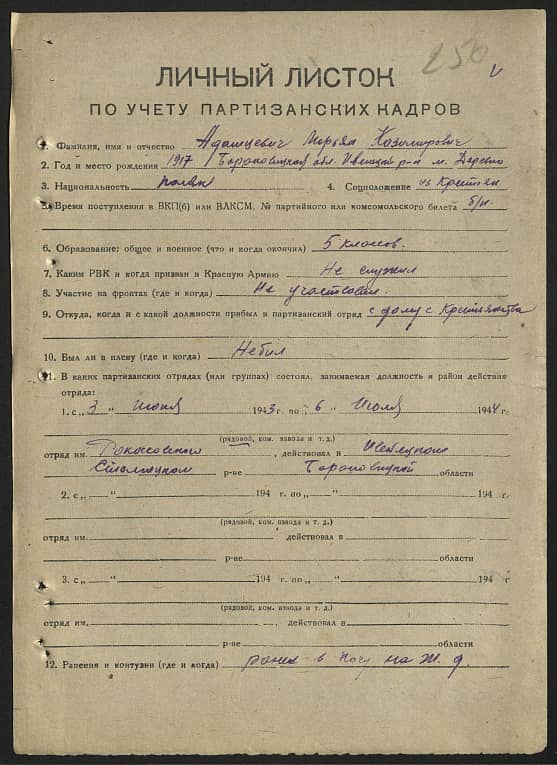 250
ЛИЧНЫЙ ЛИСТОК
ПО УЧЕТУ ПАРТИЗАНСКИХ КАДРОВ
1. Фамилия, имя и отчество Адамцевич Марьян Казимирович
2. Год и место рождения 1917 Барановицкая обл. Ивенецкий р-н м. Деревно
3. Национальность поляк 4. Соцположение из Крестьян
5. Время поступления в ВКП(б) или ВЛКСМ, № партийного или комсомольского билета б/п.
6. Образование: общее и военное (что и когда окончил) 5 классов.
7. Каким РВК и когда призван в Красную Армию Не служил
8. Участие на фронтах (где и когда) Не участвовал.
9. Откуда, когда и с какой должности прибыл в партизанский отряд с дому с Крестьянства
10. Был ли в плену (где и когда) Небыл
11. В каких партизанских отрядах (или группах) состоял, занимаемая должность и район действия
отряда:
1. с „3 „ Июня 1943 г. по „6 „ Июля 1944 г.
(рядовой, ком. взвода и т. д.)
отряд им. Рокосовского, действовал в Ивенецком
Столпецком р-не Барановицкой области
2. с „ “ 194 г. по „ “ 194 г.
(рядовой, ком. взвода и т. д.)
отряд им. действовал в
р-не области
3. с „ “ 194 г. по „ “ 194 г
(рядовой, ком. взвода и т. д.)
отряд им. действовал в
р-не области
12. Ранения и контузии (где и когда) ранен в ногу на Ж. д.